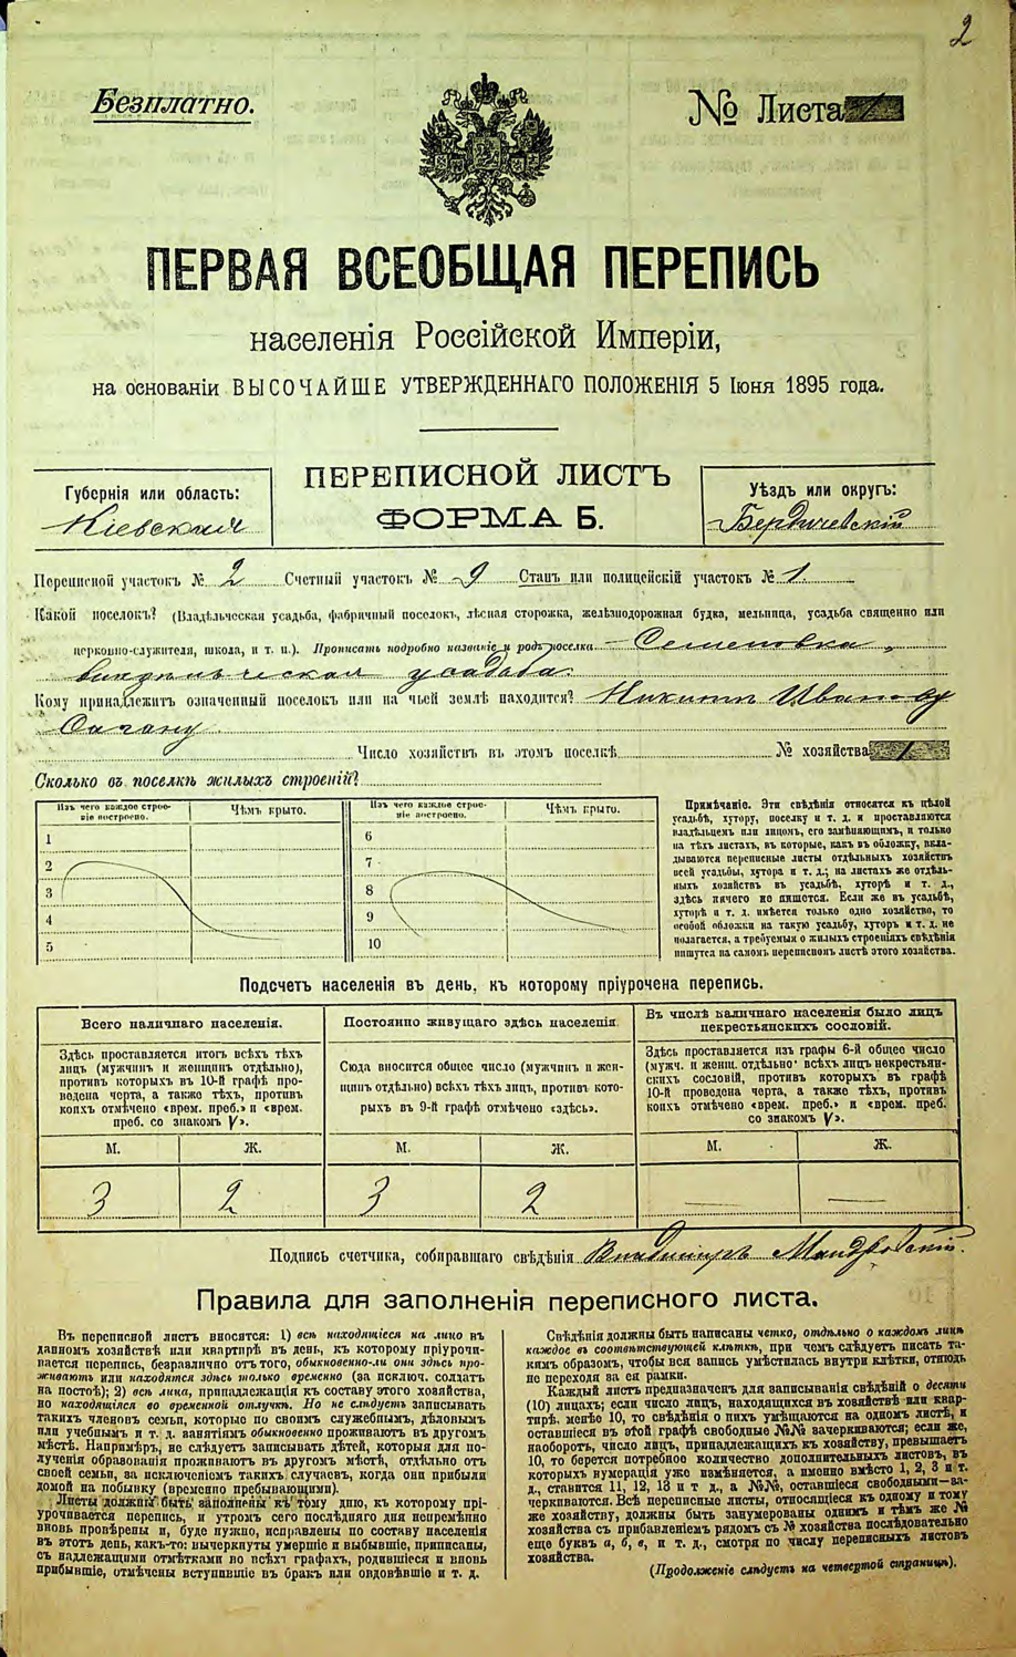 2
Безплатно.
№ Листа 1
ПЕРВАЯ ВСЕОБЩАЯ ПЕРЕПИСЬ
населенія Россійской Имперіи,
на основаніи ВЫСОЧАЙШЕ УТВЕРЖДЕННАГО ПОЛОЖЕНІЯ 5 Іюня 1895 года.
ПЕРЕПИСНОЙ ЛИСТЪ
ФОРМА Б.
Губернія или область:
Кіевская
Уѣздъ или округъ:
Бердичевскій
Переписной участокъ № 2 Счетный участокъ № 9 Станъ или полицейскій участокъ № 1.
Какой поселокъ? (Владѣльческая усадьба, фабричный поселокъ, лѣсная сторожка, желѣзнодорожная будка, мельница, усадьба священно или
церковно-служителя, школа, и т. п.). Прописать подробно названіе и родъ поселка Семеновка,
владѣльческая усадьба.
Кому принадлежитъ означенный поселокъ или на чьей землѣ находится? Никитѣ Иванову
Сагану
Число хозяйствъ въ этомъ поселкѣ № хозяйства 1
Сколько въ поселкѣ жилыхъ строеній?
Изъ чего каждое строе-
ніе построено.
Чѣмъ крыто.
Изъ чего каждое строе-
ніе построено.
Чѣмъ крыто.
1 6
2 7
3 8
4 9
5 10
Примѣчаніе. Эти свѣдѣнія относятся къ цѣлой
усадьбѣ, хутору, поселку и т. д. и проставляются
владѣльцемъ или лицомъ, его замѣняющимъ, и только
на тѣхъ листахъ, въ которые, какъ въ обложку, вкла-
дываются переписные листы отдѣльныхъ хозяйствъ
всей усадьбы, хутора и т. д.; на листахъ же отдѣль-
ныхъ хозяйствъ въ усадьбѣ, хуторѣ и т. д.,
здѣсь ничего не пишется. Если же въ усадьбѣ,
хуторѣ и т. д. имѣется только одно хозяйство, то
особой обложки на такую усадьбу, хуторъ и т. д. не
полагается, а требуемыя о жилыхъ строеніяхъ свѣдѣнія
пишутся на самомъ переписномъ листѣ этого хозяйства.
Подсчетъ населенія въ день, къ которому пріурочена перепись.
Всего наличнаго населенія.
Здѣсь проставляется итогъ всѣхъ тѣхъ
лицъ (мужчинъ и женщинъ отдѣльно),
противъ которыхъ въ 10-й графѣ про-
ведена черта, а также тѣхъ, противъ
коихъ отмѣчено «врем. преб.» и «врем.
преб. со знакомъ V».
Постоянно живущаго здѣсь населенія.
Сюда вносится общее число (мужчинъ и жен-
щинъ отдѣльно) всѣхъ тѣхъ лицъ, противъ кото-
рыхъ въ 9-й графѣ отмѣчено «здѣсь».
Въ числѣ наличнаго населенія было лицъ
некрестьянскихъ сословій.
Здѣсь проставляется изъ графы 6-й общее число
(мужч. и женщ. отдѣльно) всѣхъ лицъ некрестьян-
скихъ сословій, противъ которыхъ въ графѣ
10-й проведена черта, а также тѣхъ, противъ
коихъ отмѣчено «врем. преб.» и «врем. преб.
со знакомъ V».
М. Ж. М. Ж. М. Ж.
3 2 3 2 — —
Подпись счетчика, собиравшаго свѣдѣнія Владиміръ
Правила для заполненія переписного листа.
Въ переписной листъ вносятся: 1) всѣ находящіеся на лицо въ
данномъ хозяйствѣ или квартирѣ въ день, къ которому пріурочи-
вается перепись, безразлично отъ того, обыкновенно-ли они здѣсь про-
живаютъ или находятся здѣсь только временно (за исключ. солдатъ
на постоѣ); 2) всѣ лица, принадлежащія къ составу этого хозяйства,
но находящіяся во временной отлучкѣ. Но не слѣдуетъ записывать
такихъ членовъ семьи, которые по своимъ служебнымъ, дѣловымъ
или учебнымъ и т. д. занятіямъ обыкновенно проживаютъ въ другомъ
мѣстѣ. Напримѣръ, не слѣдуетъ записывать дѣтей, которыя для по-
лученія образованія проживаютъ въ другомъ мѣстѣ, отдѣльно отъ
своей семьи, за исключеніемъ такихъ случаевъ, когда они прибыли
домой на побывку (временно пребывающими).
Листы должны быть заполнены къ тому дню, къ которому прі-
урочивается перепись, и утромъ сего послѣдняго дня непремѣнно
вновь провѣрены и, буде нужно, исправлены по составу населенія
въ этотъ день, какъ-то: вычеркнуты умершіе и выбывшіе, приписаны,
съ надлежащими отмѣтками во всѣхъ графахъ, родившіеся и вновь
прибывшіе, отмѣчены вступившіе въ бракъ или овдовѣвшіе и т. д.
Свѣдѣнія должны быть написаны четко, отдѣльно о каждомъ лицѣ
каждое въ соотвѣтствующей клѣткѣ, при чемъ слѣдуетъ писать та-
кимъ образомъ, чтобы вся запись умѣстилась внутри клѣтки, отнюдь
не переходя за ея рамки.
Каждый листъ предназначенъ для записыванія свѣдѣній о десяти
(10) лицахъ; если число лицъ, находящихся въ хозяйствѣ или квар-
тирѣ, менѣе 10, то свѣдѣнія о нихъ умѣщаются на одномъ листѣ, и
оставшіеся въ этой графѣ свободные №№ вачеркиваются; если же,
наоборотъ, число лицъ, принадлежащихъ къ хозяйству, превышаетъ
10, то берется потребное количество дополнительныхъ листовъ, въ
которыхъ нумерація уже измѣняется, а именно вмѣсто 1, 2, 3 и т.
д., ставится 11, 12, 13 и т д., а №№, оставшіеся свободными—за-
черкиваются. Всѣ переписные листы, относящіеся къ одному и тому
же хозяйству, должны быть занумерованы однимъ и тѣмъ же №
хозяйства съ прибавленіемъ рядомъ съ № хозяйства послѣдовательно
еще буквъ а, б, в, и т. д., смотря по числу переписныхъ листовъ
хозяйства.
(Продолженіе слѣдуетъ на четвертой страницѣ).